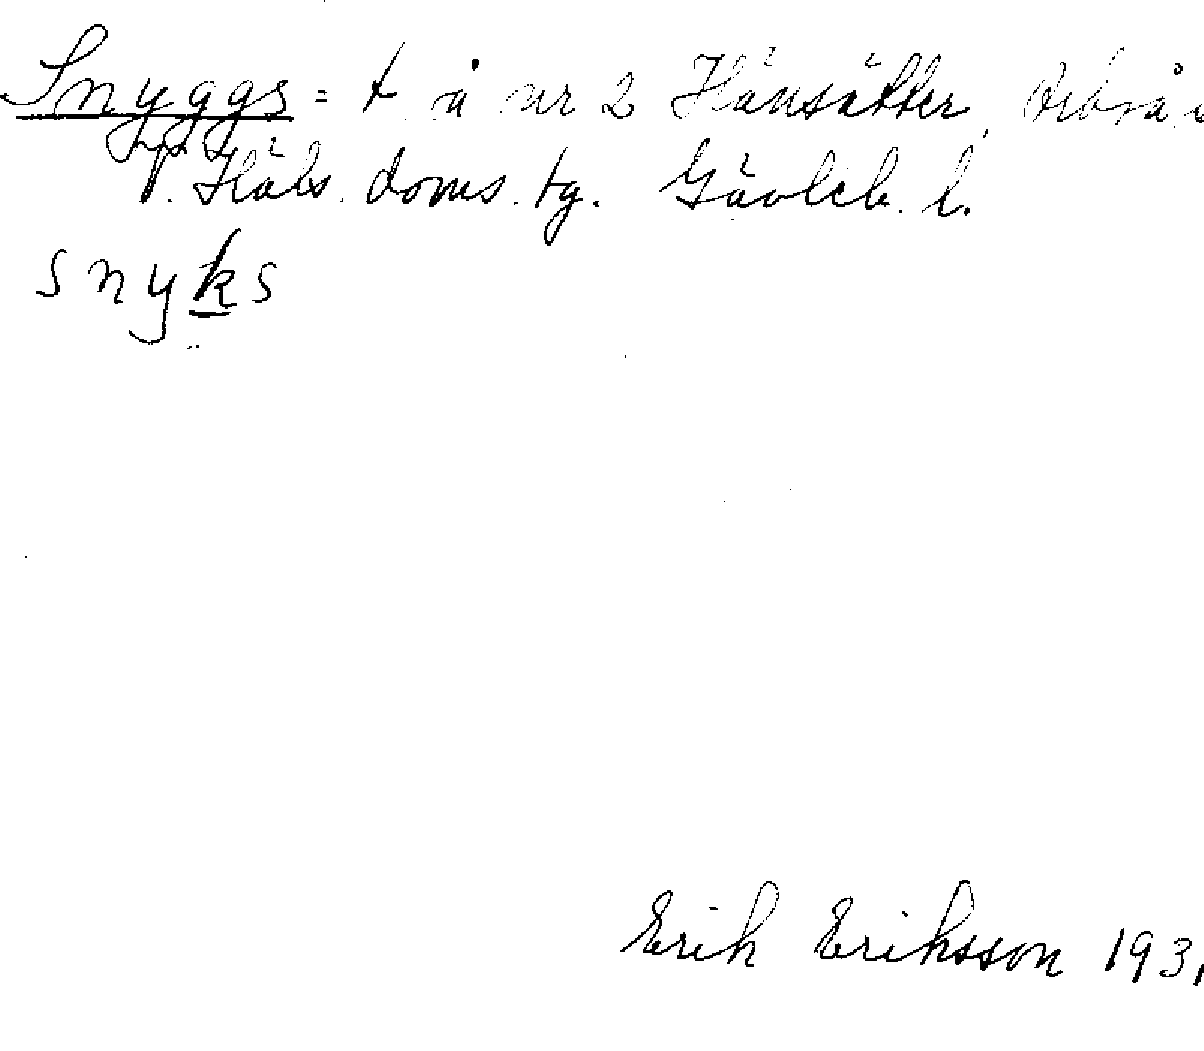 Snyggs = t å nr 2 Hänsätter, Arbrå
V. Häls. doms. tg. Gävleb. l.
snyks
Erik Eriksson 193